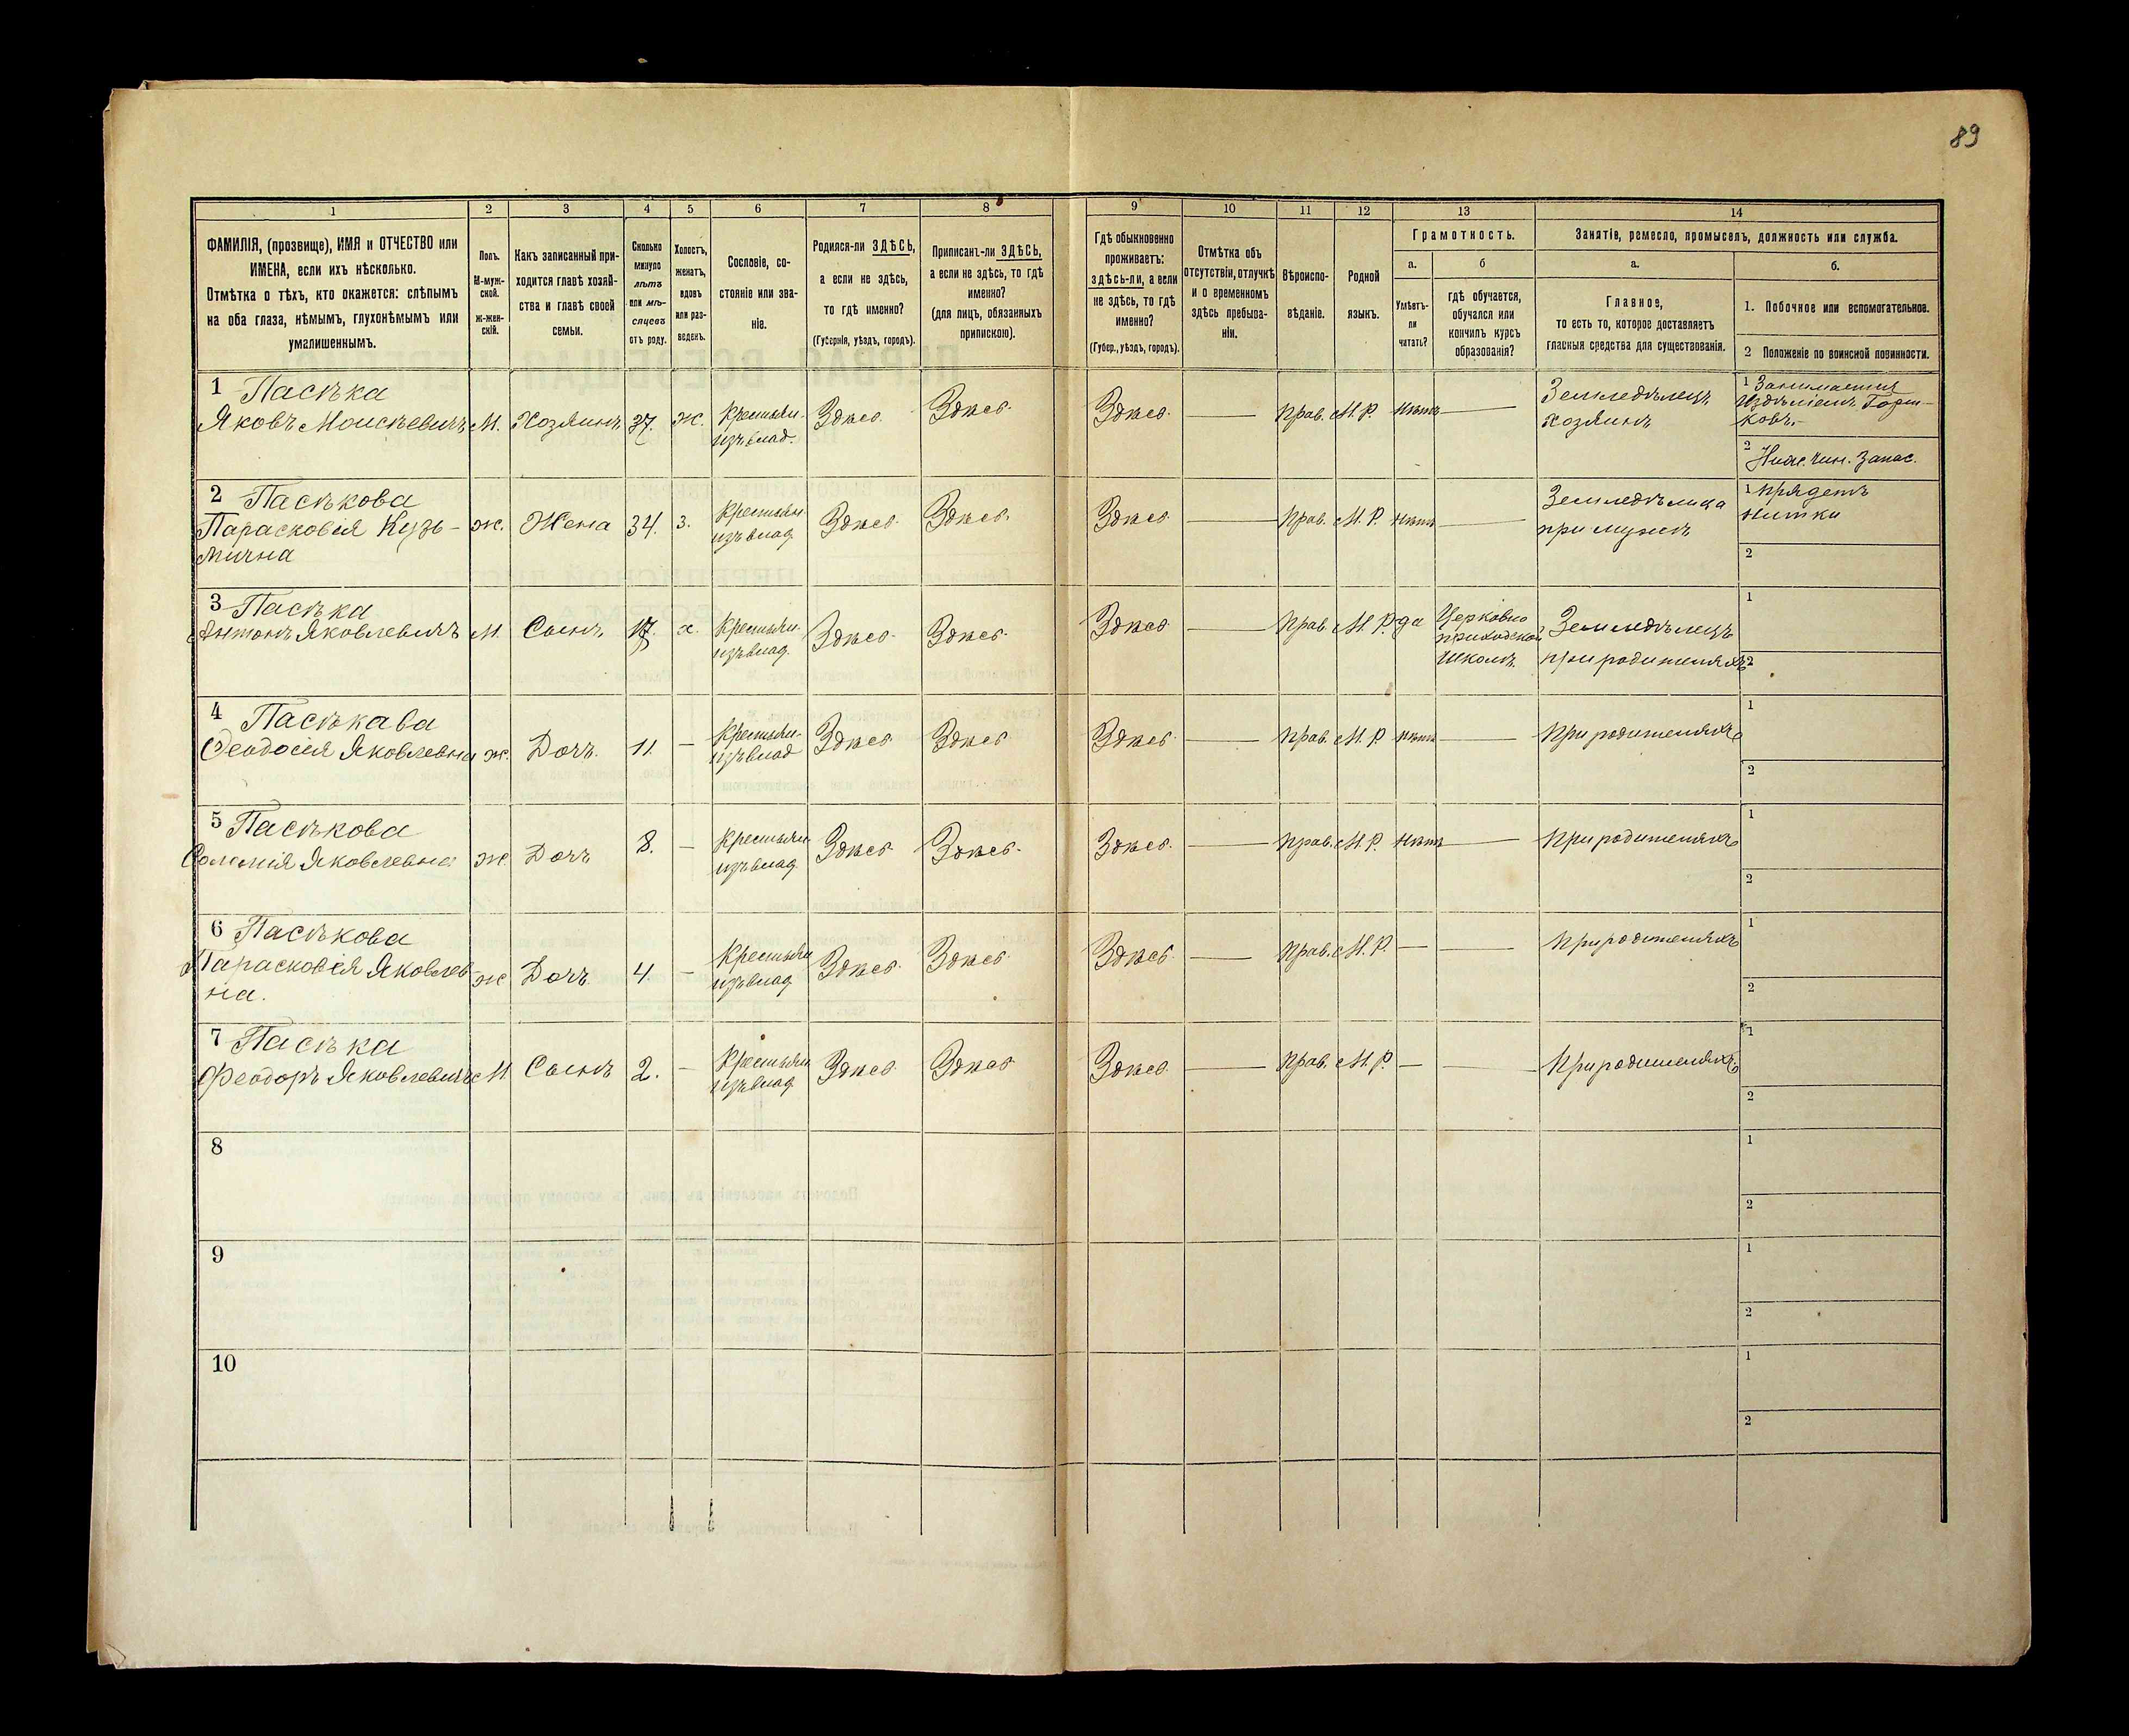 89
1 2 3 4 5 6 7 8 9 10 11 12 13 14
ФАМИЛІЯ, (прозвище), ИМЯ и ОТЧЕСТВО или
ИМЕНА, если ихъ нѣсколько.
Отмѣтка о тѣхъ, кто окажется: слѣпымъ
на оба глаза, нѣмымъ, глухонѣмымъ или
умалишеннымъ.
Полъ.
М-муж-
ской.
ж-жен-
скій.
Какъ записанный при-
ходится главѣ хозяй-
ства и главѣ своей
семьи.
Сколько
минуло
лѣтъ
или мѣ-
сяцевъ
отъ роду.
Холостъ,
женатъ,
вдовъ
или раз-
веденъ.
Сословіе, со-
стояніе или зва-
ніе.
Родился-ли ЗДѢСЬ,
а если не здѣсь,
то гдѣ именно?
(Губернія, уѣздъ, городъ).
Приписанъ-ли ЗДѢСЬ,
а если не здѣсь, то гдѣ
именно?
(для лицъ, обязанныхъ
припискою).
Гдѣ обыкновенно
проживаетъ:
здѣсь-ли, а если
не здѣсь, то гдѣ
именно?
(Губер., уѣздъ, городъ).
Отмѣтка объ
отсутствіи, отлучкѣ
и о временномъ
здѣсь пребыва-
ніи.
Вѣроиспо-
вѣданіе.
Родной
языкъ.
Грамотность.
а.
Умѣетъ-
ли
читать?
б
гдѣ обучается,
обучался или
кончилъ курсъ
образованія?
Занятіе, ремесло, промыселъ, должность или служба.
а.
Главное,
то есть то, которое доставляетъ
главныя средства для существованія.
б.
1. Побочное или вспомогательное.
2 Положеніе по воинской повинности.
1 Пасѣка
Яковъ Моисѣевичъ М. Хозяинъ 37 ж. Крестьян. Здѣсь Здѣсь. Здѣсь. — прав. М. Р. нѣтъ — Земледѣлецъ
изъ влад. хозяинъ
1 Занимается
Издѣліемъ Горш-
ковъ.-
2 Нижс. чин. Запас.
2 Пасѣкова
Парасковія Кузь- ж. Жена 34. з. Крестьян Здѣсь. Здѣсь. Здѣсь — прав. М. Р. нѣтъ — Земледѣлица
мична изъ влад при мужѣ
1 прядетъ
нитки
2
3 Пасѣка
Антонъ Яковлевичъ М. Сынъ 17. х. Крестьян. Здѣсь. Здѣсь. Здѣсь — прав. М. Р. да Церковно Земледѣлецъ
изъ влад. приходской
школѣ. при родителяхъ
1
2
4 Пасѣкава
Феодосія Яковлевна ж. Дочь. 11. — Крестьян- Здѣсь Здѣсь Здѣсь — прав. М. Р. нѣтъ — при родителяхъ
изъ влад
1
2
5 Пасѣкова
Соломія Яковлевна ж Дочь 8. — Крестьян Здѣсь Здѣсь. Здѣсь. — прав. М. Р. нѣтъ — при родителяхъ
изъ влад
1
2
6 Пасѣкова
Парасковія Яковлев- ж Дочь. 4. — Крестьян Здѣсь. Здѣсь. Здѣсь. — прав. М. Р. — — при родителяхъ
на. изъ влад
1
2
7 Пасѣка
Феодоръ Яковлевичъ М Сынъ 2. — Крестьян Здѣсь Здѣсь Здѣсь. — прав. М. Р. — — при родителяхъ
изъ влад
1
2
8
1
2
9
1
2
10
1
2